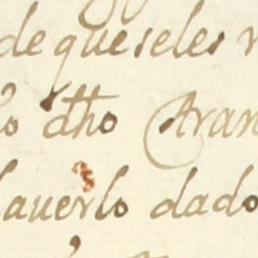 de que se les
dho Aran
auerlo dado